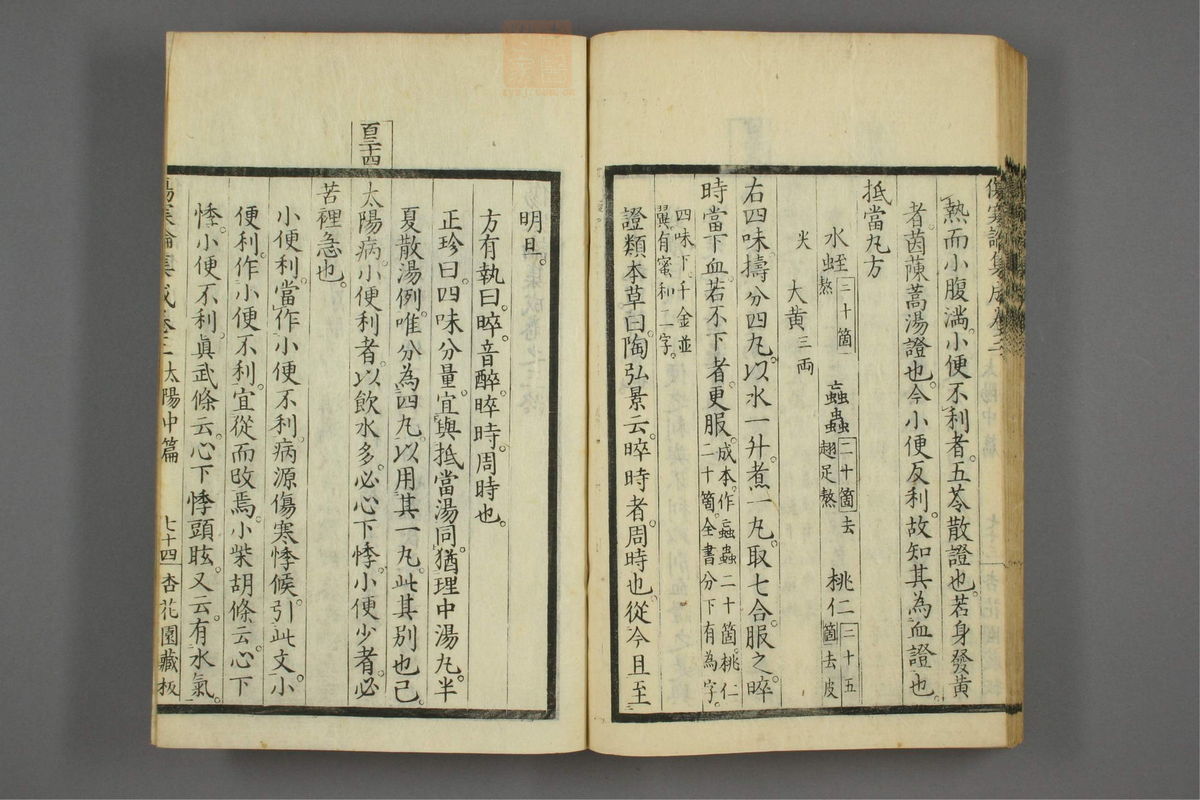 熱而小腹滿。小便不利者。五苓散證也。若身發黃
者。茵蔯蒿湯證也。今小便反利。故知其為血證也。
抵當丸方
水蛭二十箇熬 䖟蟲二十箇去翅足熬 桃仁二十五箇去皮
尖 大黃三兩
右四味。擣分四丸。以水一升。煮一丸。取七合服之。晬
時當下血。若不下者更服。成本。作䖟蟲二十箇。桃仁二十箇。全書分下有為字。
四味下。千金並翼。有蜜和二字。
證類本草曰。陶弘景云。晬時者。周時也。從今旦至
明旦。
方有執曰。晬。音醉。晬時。周時也。
正珍曰。四味分量。宜與抵當湯同。猶理中湯丸。半
夏散湯例。唯分為四丸。以用其一丸。此其別也已
百三十四
太陽病。小便利者。以飲水多。必心下悸。小便少者。必
苦裡急也。
小便利。當作小便不利。病源傷寒悸候。引此文。小
便利。作小便不利。宜從而改焉。小柴胡條云。心下
悸。小便不利。眞武條云。心下悸頭眩。又云。有水氣。
傷寒論集成卷三 太陽中篇 七十四 杏花園藏板